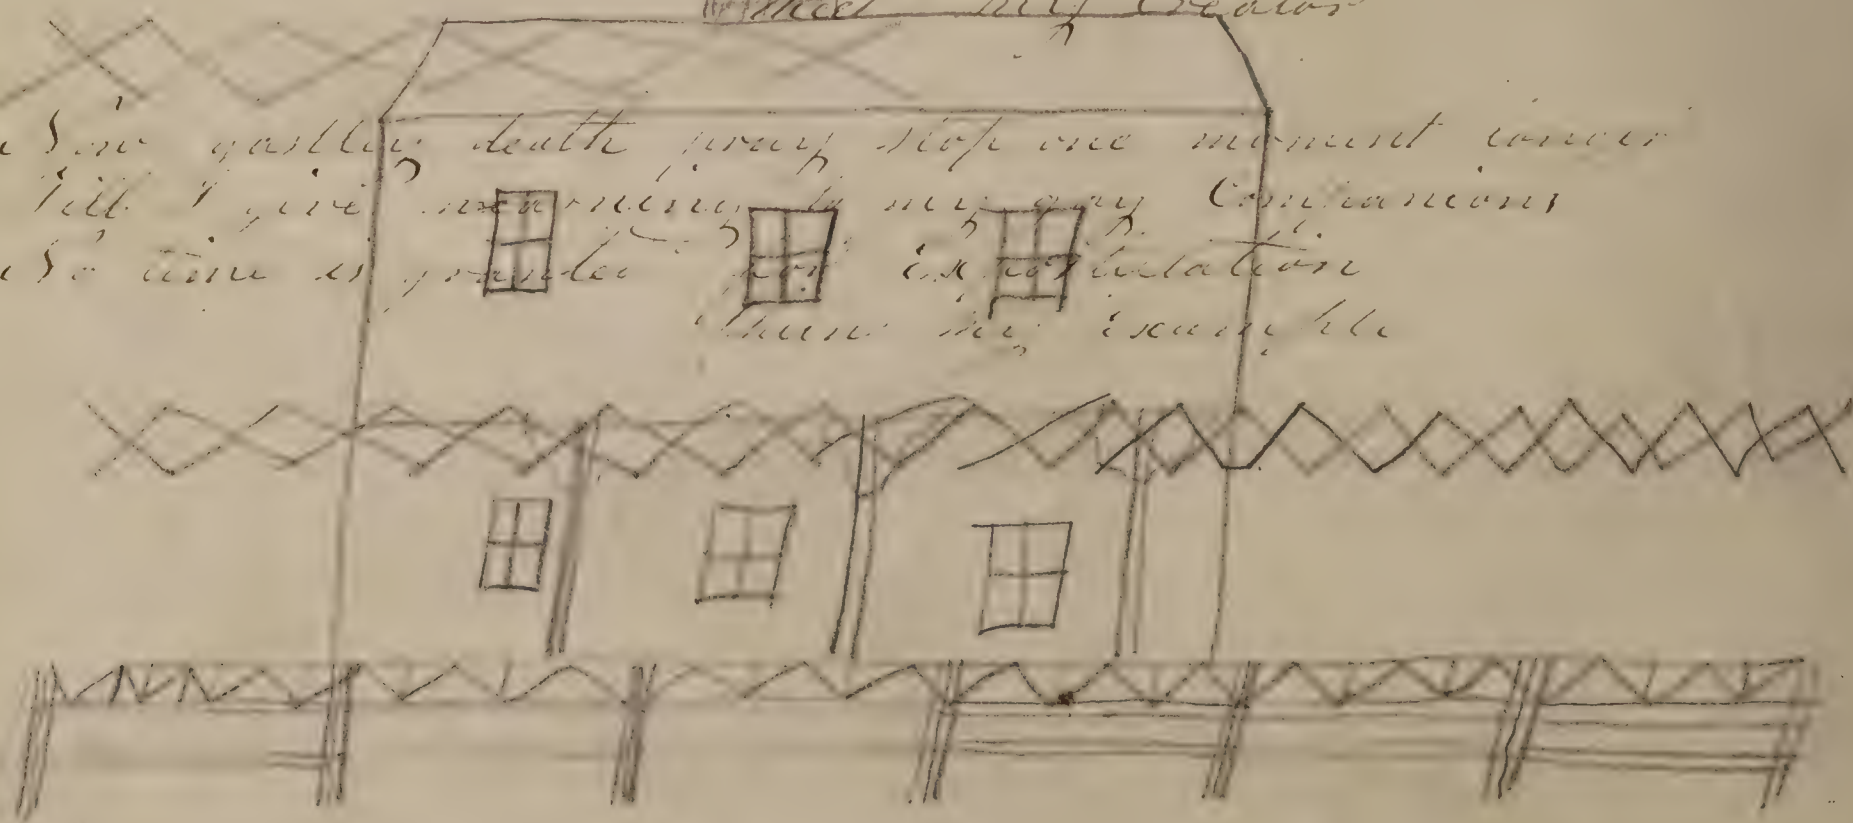 my Creator
Now gastley death pray stop one moment longer
Till I give wearning to my gay Companions
No time is granted for Expostulation
Shun my Example